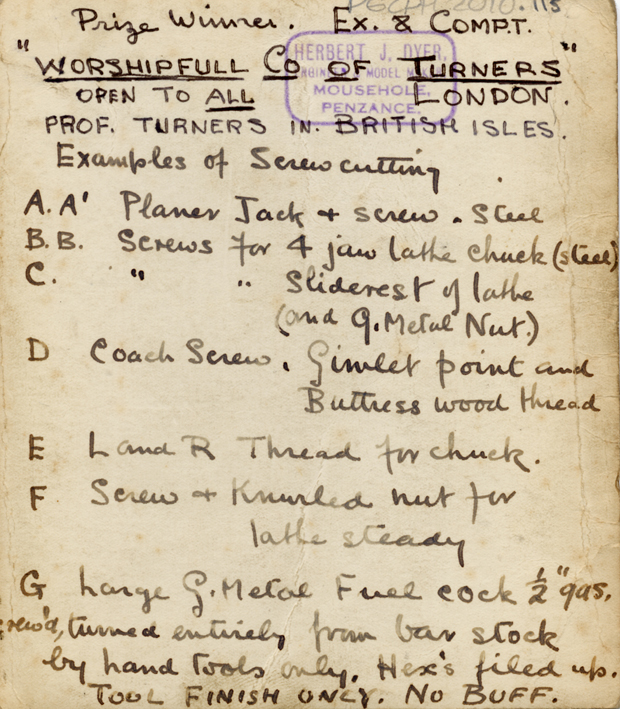 PGCPH 2010.115
Prize Winner. Ex. & Compt.
"WORSHIPFULL Co OF TURNERS"
OPEN TO ALL LONDON.
HERBERT J. DYER,
MODEL
MOUSEHOLE,
PENZANCE.
PROF. TURNERS IN BRITISH ISLES.
Examples of Screwcutting
A. A' Planer Jack + screw. Steel
B. B. Screws for 4 jaw lathe chuck (steel)
C. " " Sliderest of lathe
(and G. Metal Nut.)
D Coach Screw. Gimlet point and
Buttress wood thread
E L and R Thread for chuck.
F Screw + Knurled nut for
lathe steady
G Large G. Metal Fuel cock ½" gas.
screw'd, turned entirely from bar stock
by hand tools only. Hex's filed up.
TOOL FINISH ONLY. NO BUFF.